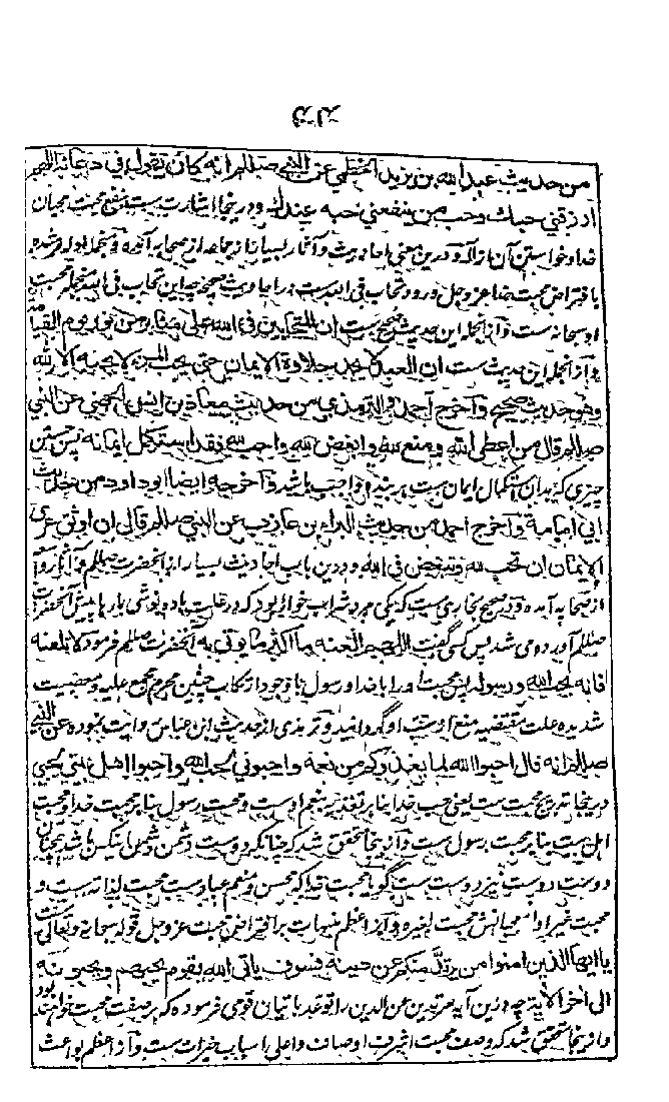 من حديث عبد الله بن يزيد الخطمي عن النبي صللم انه كان يقول في دعائه اللهم
ارزقني حبك وحب من ينفعني حبه عندك ودرينجا اشارت ست محبت محبان
خدا وخواستن آن ازاله ودرين معنى احاديث وآثار بسيار از جماعه از صحابه آمده
با فتراض محبت خدا عز وجل ورود تحاب في الله ست در احاديث صحيحه چه اين تحاب في الله محبت
او سبحانه ست وآز انجمله اين حديث صحيح ست ان المتحابين في الله على منابر من نور يوم القيامة
وآز انجمله اين حديث ست ان العبد لا يجد حلاوة الايمان حتى يحب المرء لا يحبه الا لله
وهو حديث صحيح وآخرج احمد والترمذي من حديث معاذ بن انس الجهني عن النبي
صللم قال من اعطى لله ومنع لله وابغض لله واحب لله فقد استكمل ايمانه پس
چيزى كه بدان استكمال ايمان ست واجب باشد وآخرجه ايضا ابو داود من حديث
ابي امامة وآخرج احمد من حديث البراء بن عازب عن النبي صللم قال ان اوثق عرى
الايمان ان تحب لله وتبغض في الله ودرين باب احاديث بسيار از آنحضرت صللم وآثار
از صحابه آمده ودر صحيح بخارى ست كه يكى مرد شراب خوار بود كه در علت باده نوشى بارها پيش آنحضرت
صللم آورده مى شد پس كسى گفت اللهم العنه ما اكثر ما يؤتى به آنحضرت صللم فرمود لا تلعنه
فانه يحب الله ورسوله پس محبت او را با خدا ورسول با وجود ارتكاب چنين محرم مجمع عليه ومعصيت
شديده علت مقتضيه منع از سب او گردانيد وترمذى از حديث ابن عباس روايت نموده عن النبي
صللم انه قال احبوا الله لما يغذوكم من نعمة واحبوني بحب الله واحبوا اهل بيتي بحبي
درينجا تدريج محبت ست يعنى حب خدا بنا بر تغذيه نعم اوست ومحبت رسول بنا بر محبت خدا ومحبت
اهل بيت بنا بر محبت رسول ست وآز ينجا متحقق شد كه چنانكه دوست دشمن دشمن اين كس باشد همچنان
دوست دوست نيز دوست ست گويا محبت خدا كه محسن ومنعم عباد ست محبت لذاته ست و
محبت غير او محبت لغيره وآز اعظم منبهات بر افتراض محبت عز وجل قوله سبحانه وتعالى ست
يا ايها الذين امنوا من يرتد منكم عن دينه فسوف ياتي الله بقوم يحبهم ويحبونه
الى آخر الآية چه درين آيه مرتدين عن الدين را توعد باتيان قومى فرموده كه بر صفت محبت خواهند بود
وازينجا متحقق شد كه وصف محبت اشرف اوصاف واعلى اسباب خيرات ست وآز اعظم بواعث